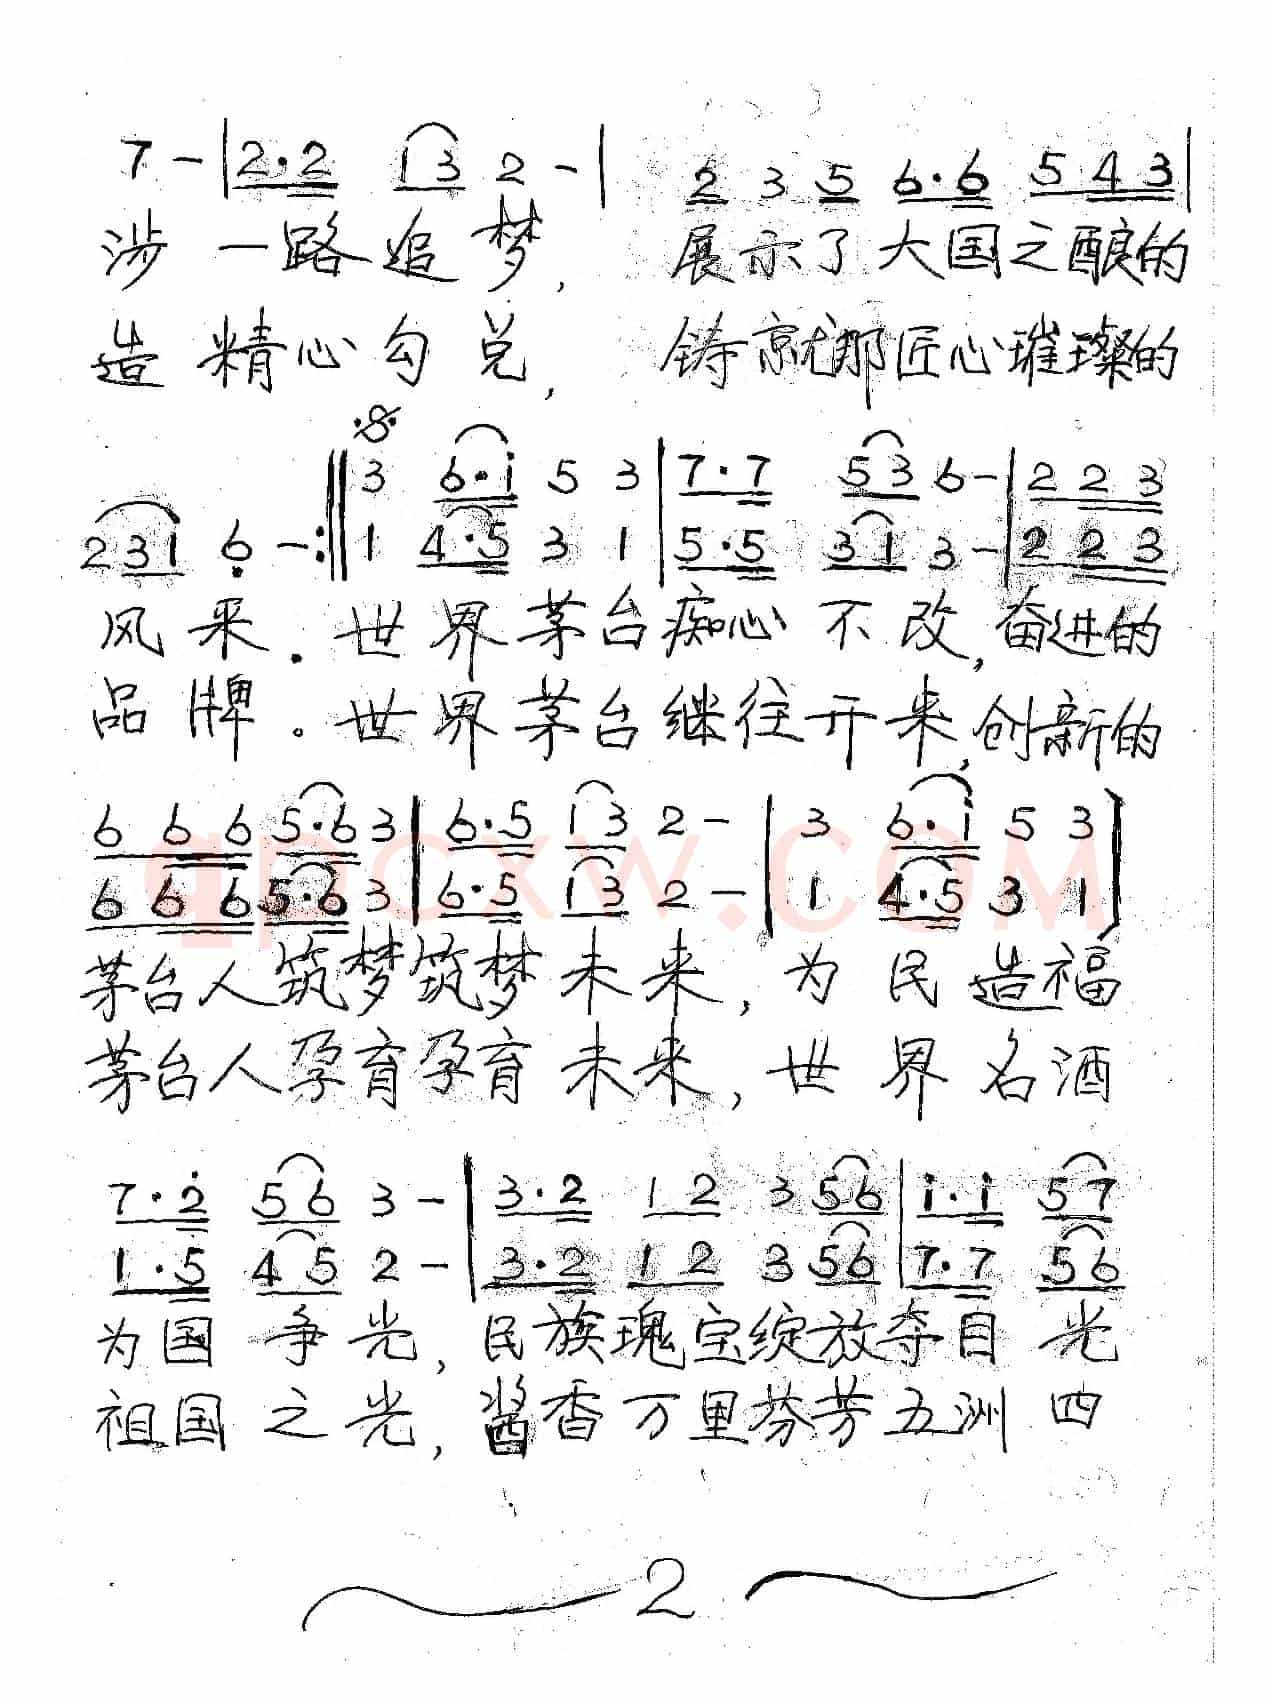 7 - | 2·2 1 3 2 - | 2 3 5 6·6 5 4 3 |
涉 一路追梦, 展示了大国之酿的
造 精心勾兑, 铸就那匠心璀璨的
2 3 1 6 - :‖ 3 6·i 5 3 | 7·7 5 3 6 - | 2 2 3
1 4·5 3 1 | 5·5 3 1 3 - | 2 2 3
风采. 世界茅台痴心不改, 奋进的
品牌。世界茅台继往开来, 创新的
6 6 6 5·6 3 | 6·5 1 3 2 - | 3 6·i 5 3 |
6 6 6 5·6 3 | 6·5 1 3 2 - | 1 4·5 3 1 |
qpcxw.com
茅台人筑梦筑梦未来, 为民造福
茅台人孕育孕育未来, 世界名酒
7·2 5 6 3 - | 3·2 1 2 3 5 6 | i·i 5 7
1·5 4 5 2 - | 3·2 1 2 3 5 6 | 7·7 5 6
为国争光, 民族瑰宝绽放夺目光
祖国之光, 酱香万里芬芳五洲四
2